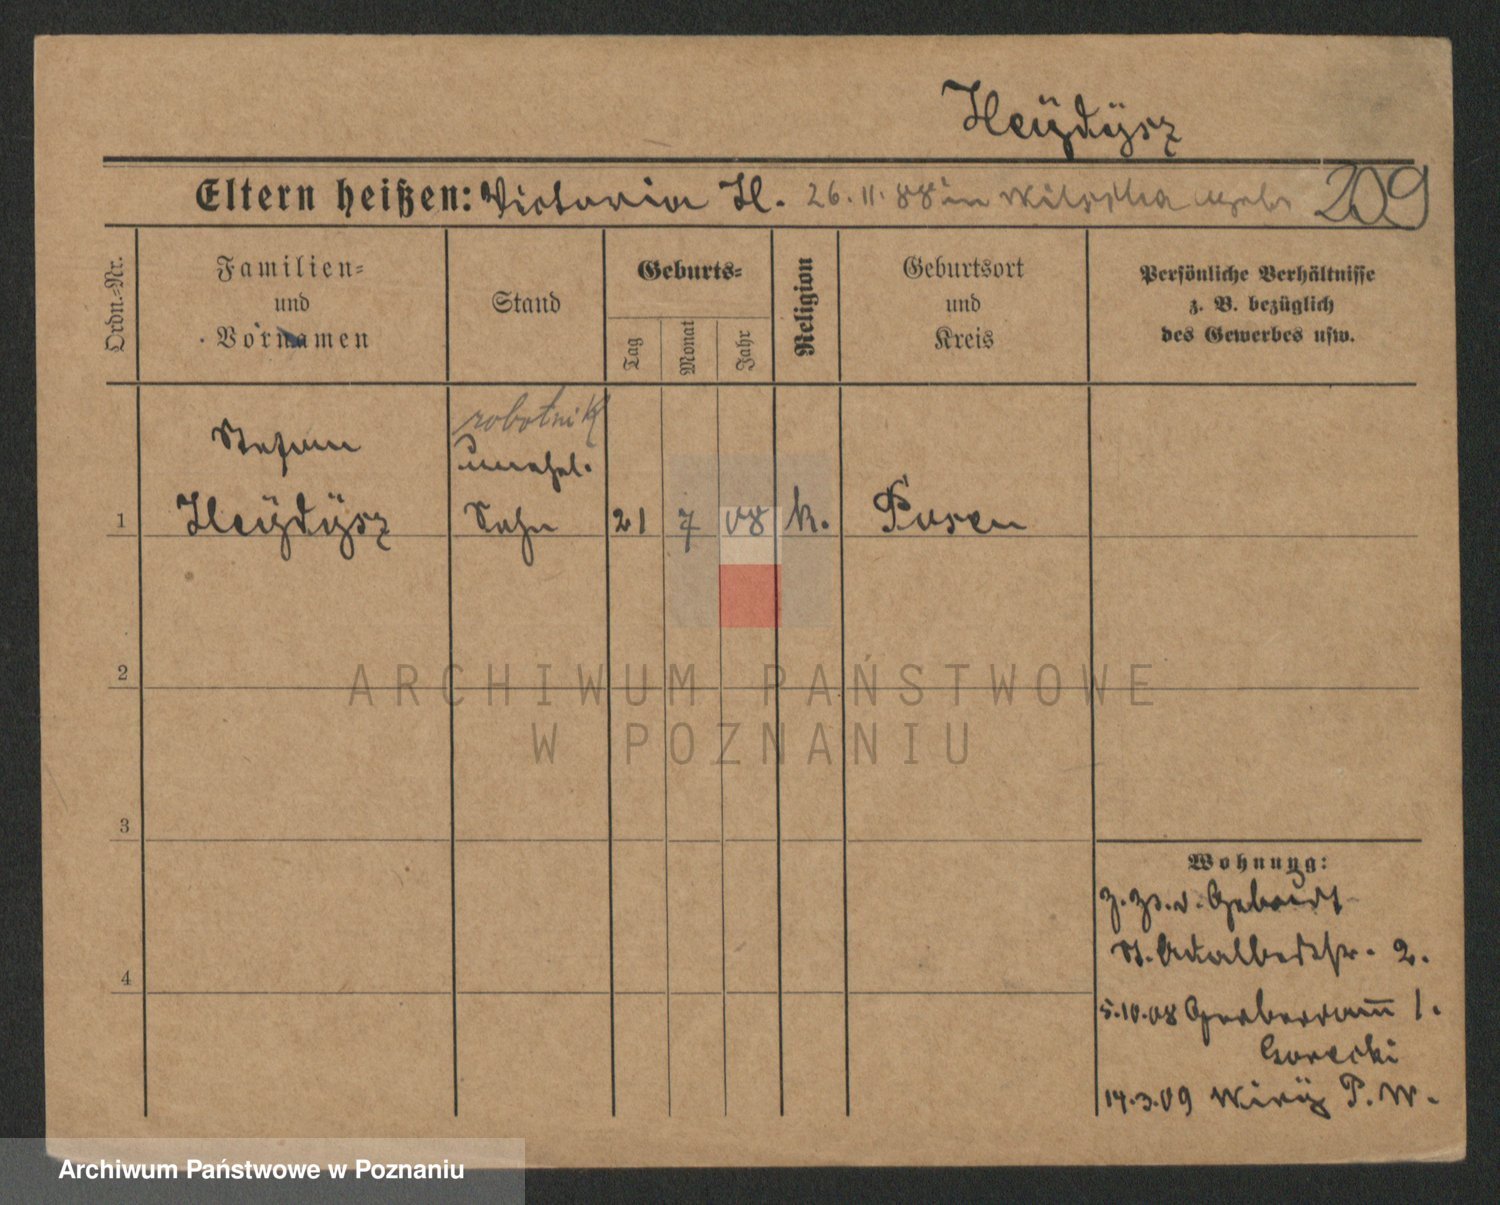 Heÿdÿsz
Eltern heißen: Victoria H. 26.11.88 in Wilschka gebr 209
Ordn.-Nr.
Familien- und Vornamen
Stand
Geburts-
Tag
Monat
Jahr
Religion
Geburtsort und Kreis
Persönliche Verhältnisse
z. B. bezüglich
des Gewerbes usw.
robotnik
Stefan
unehel.
1 Heÿdÿsz Sohn 21 7 08 k. Posen
2
ARCHIWUM PAŃSTWOWE
W POZNANIU
3
Wohnung:
z. Zt. d. Geburt
St. Adalbertstr. 2.
4
5.10.08 Gerberdamm 1.
Gorecki
14.3.09 Wirÿ P. W.
Archiwum Państwowe w Poznaniu